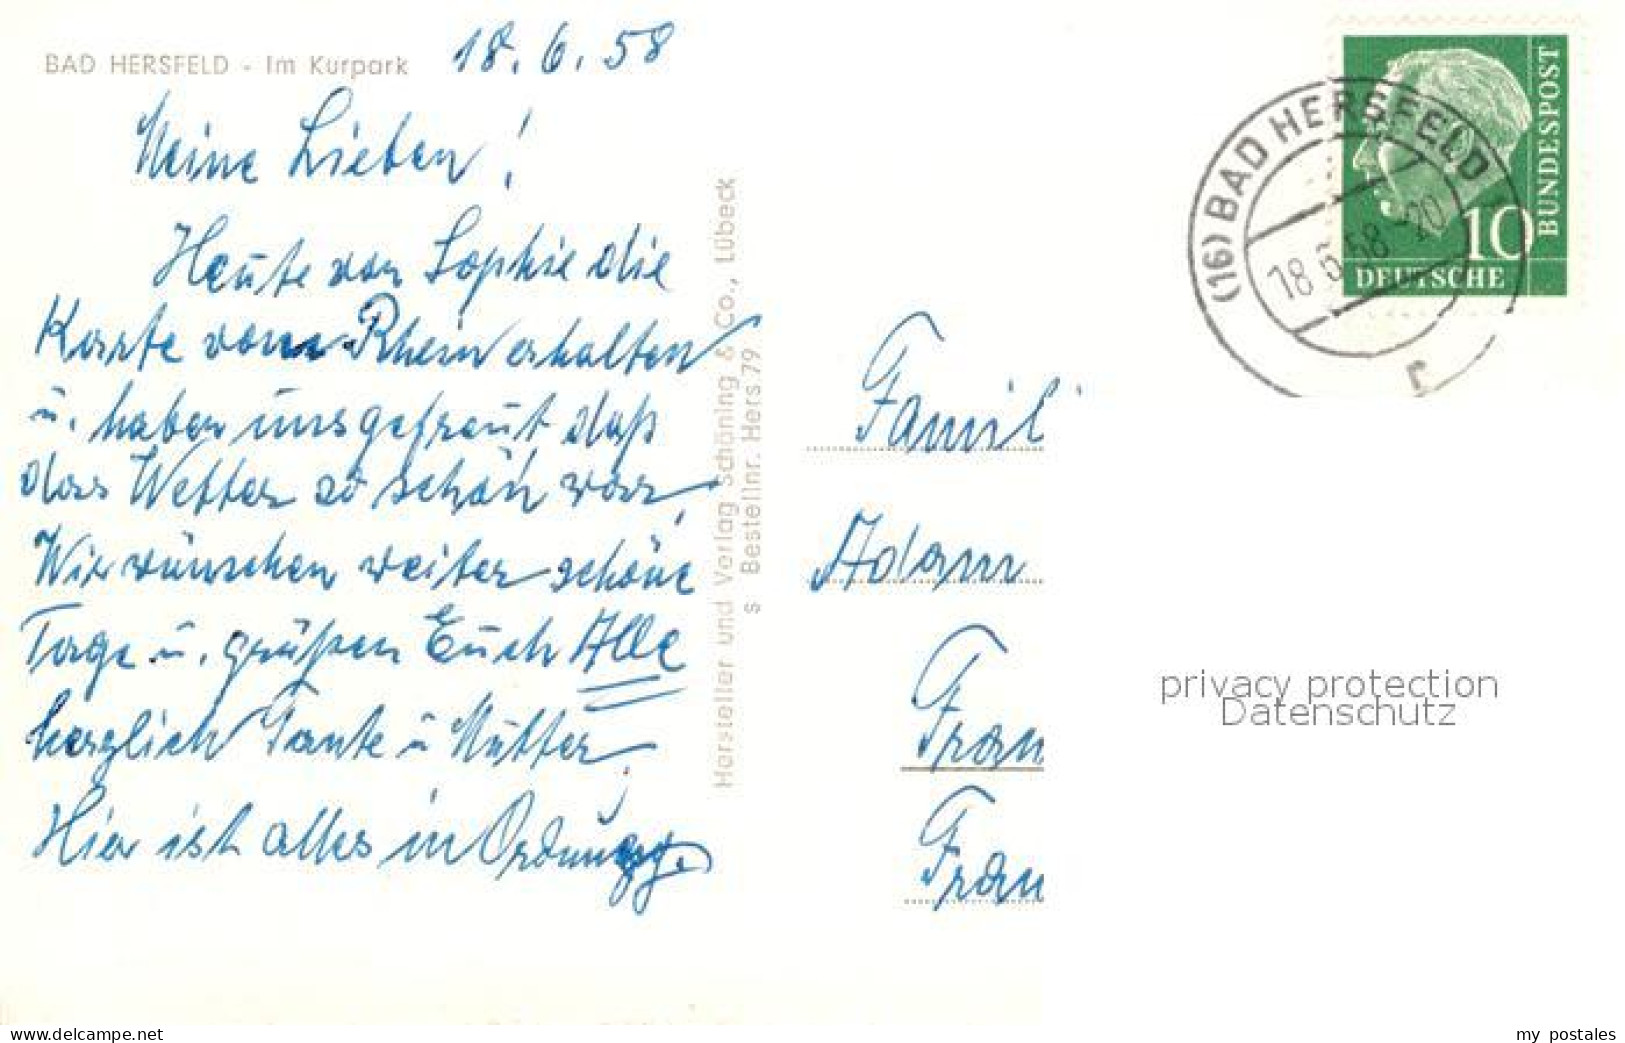 BAD HERSFELD - Im Kurpark
18.6.58
Meine Lieben!
Heute von Sophie die
Karte vom Rhein erhalten
u. haben uns gefreut daß
das Wetter so schön war,
Wir wünschen weiter schöne
Tage u. grüßen Euch Alle
herzlich Tante u Mutter,
Hier ist alles in Ordnung.
Hersteller und Verlag Schöning & Co., Lübeck
S Bestellnr. Hers 79
(16) BAD HERSFELD
18.6.58-20
r
DEUTSCHE
BUNDESPOST
10
Famil
Adam
Fran
Fran
privacy protection
Datenschutz
www.delcampe.net
my postales